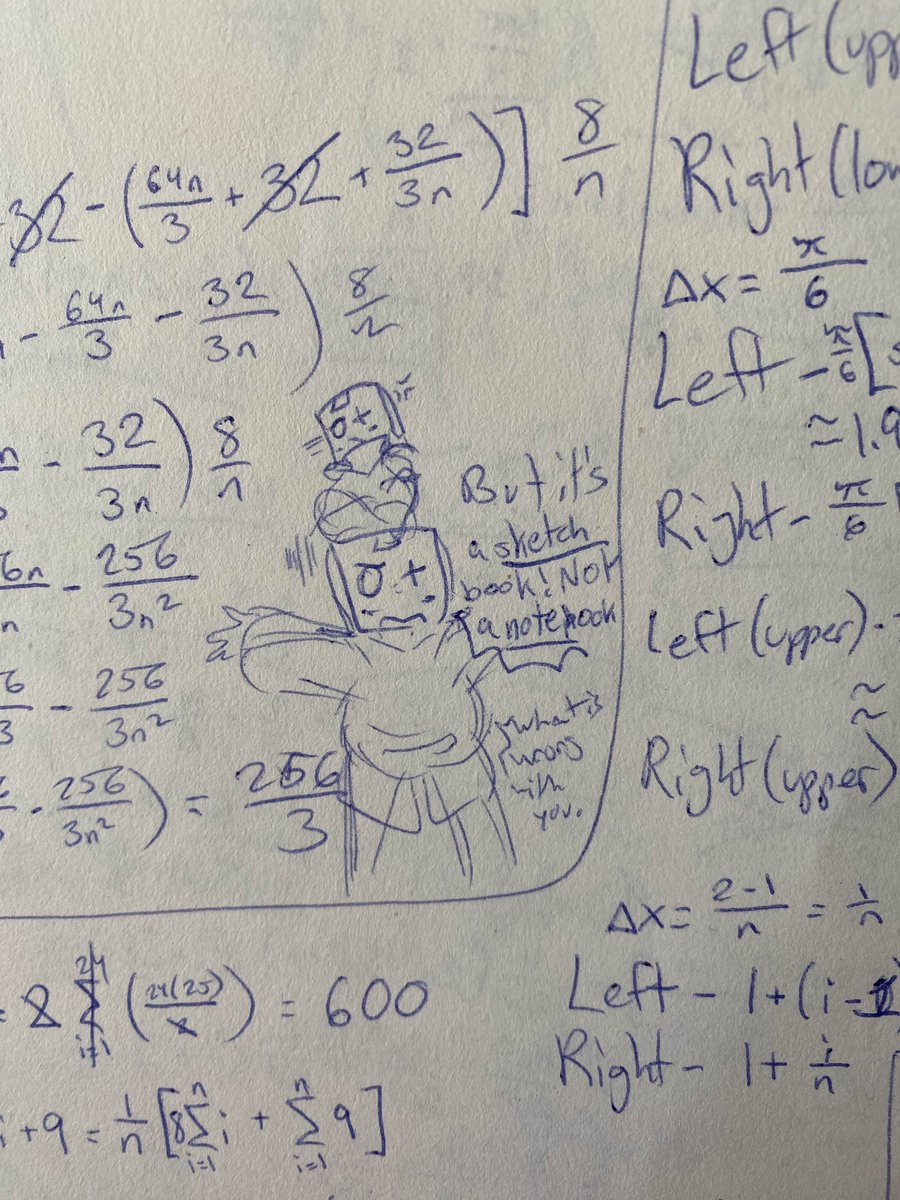 - 32 - (64n/3 + 32 + 32/3n)] 8/n
- 64n/3 - 32/3n) 8/n
- 32/3n) 8/n
6n/n - 256/3n²
6/3 - 256/3n²
- 256/3n²) = 256/3
But it's
a sketch
book! Not
a notebook
what is
wrong
with
you.
= 8 24∑i=1 (24(25)/2) = 600
i + 9 = 1/n [8 n∑i=1 i + n∑i=1 9]
Left (upp
Right (low
Δx = π/6
Left - π/6 [s
≈ 1.9
Right - π/6
Left (upper) -
≈
Right (upper)
Δx = 2-1/n = 1/n
Left - 1 + (i -
Right - 1 + i/n